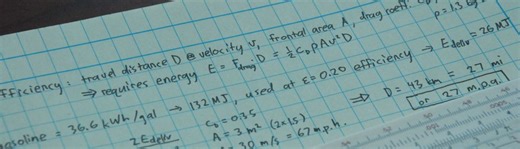 FFICIENCY: travel distance D @ velocity v, frontal area A, drag coeff. C_D, ρ=1.3 kg
⇒ requires energy E = F_drag · D = ½ C_D ρ A v² D
asoline = 36.6 kWh/gal → 132 MJ, used at ε=0.20 efficiency → E_deliv = 26 MJ
2E_deliv
C_D = 0.35
A = 3 m² (2x1.5)
30 m/s = 67 m.p.h.
⇒ D = 43 km = 27 mi
or 27 m.p.g.